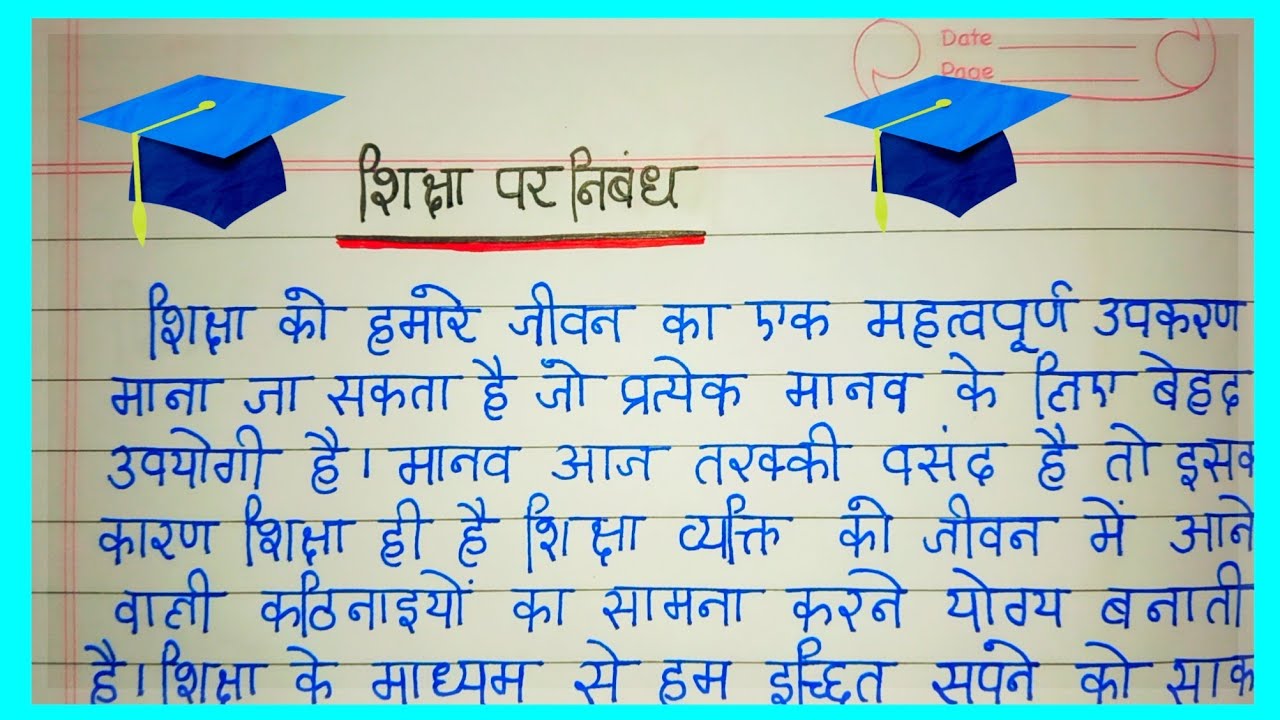 Date
Page
शिक्षा पर निबंध
शिक्षा को हमारे जीवन का एक महत्वपूर्ण उपकरण
माना जा सकता है जो प्रत्येक मानव के लिए बेहद
उपयोगी है। मानव आज तरक्की पसंद है तो
कारण शिक्षा ही है शिक्षा व्यक्ति को जीवन में आने
वाली कठिनाइयों का सामना करने योग्य बनाती
है। शिक्षा के माध्यम से हम इच्छित सपने को